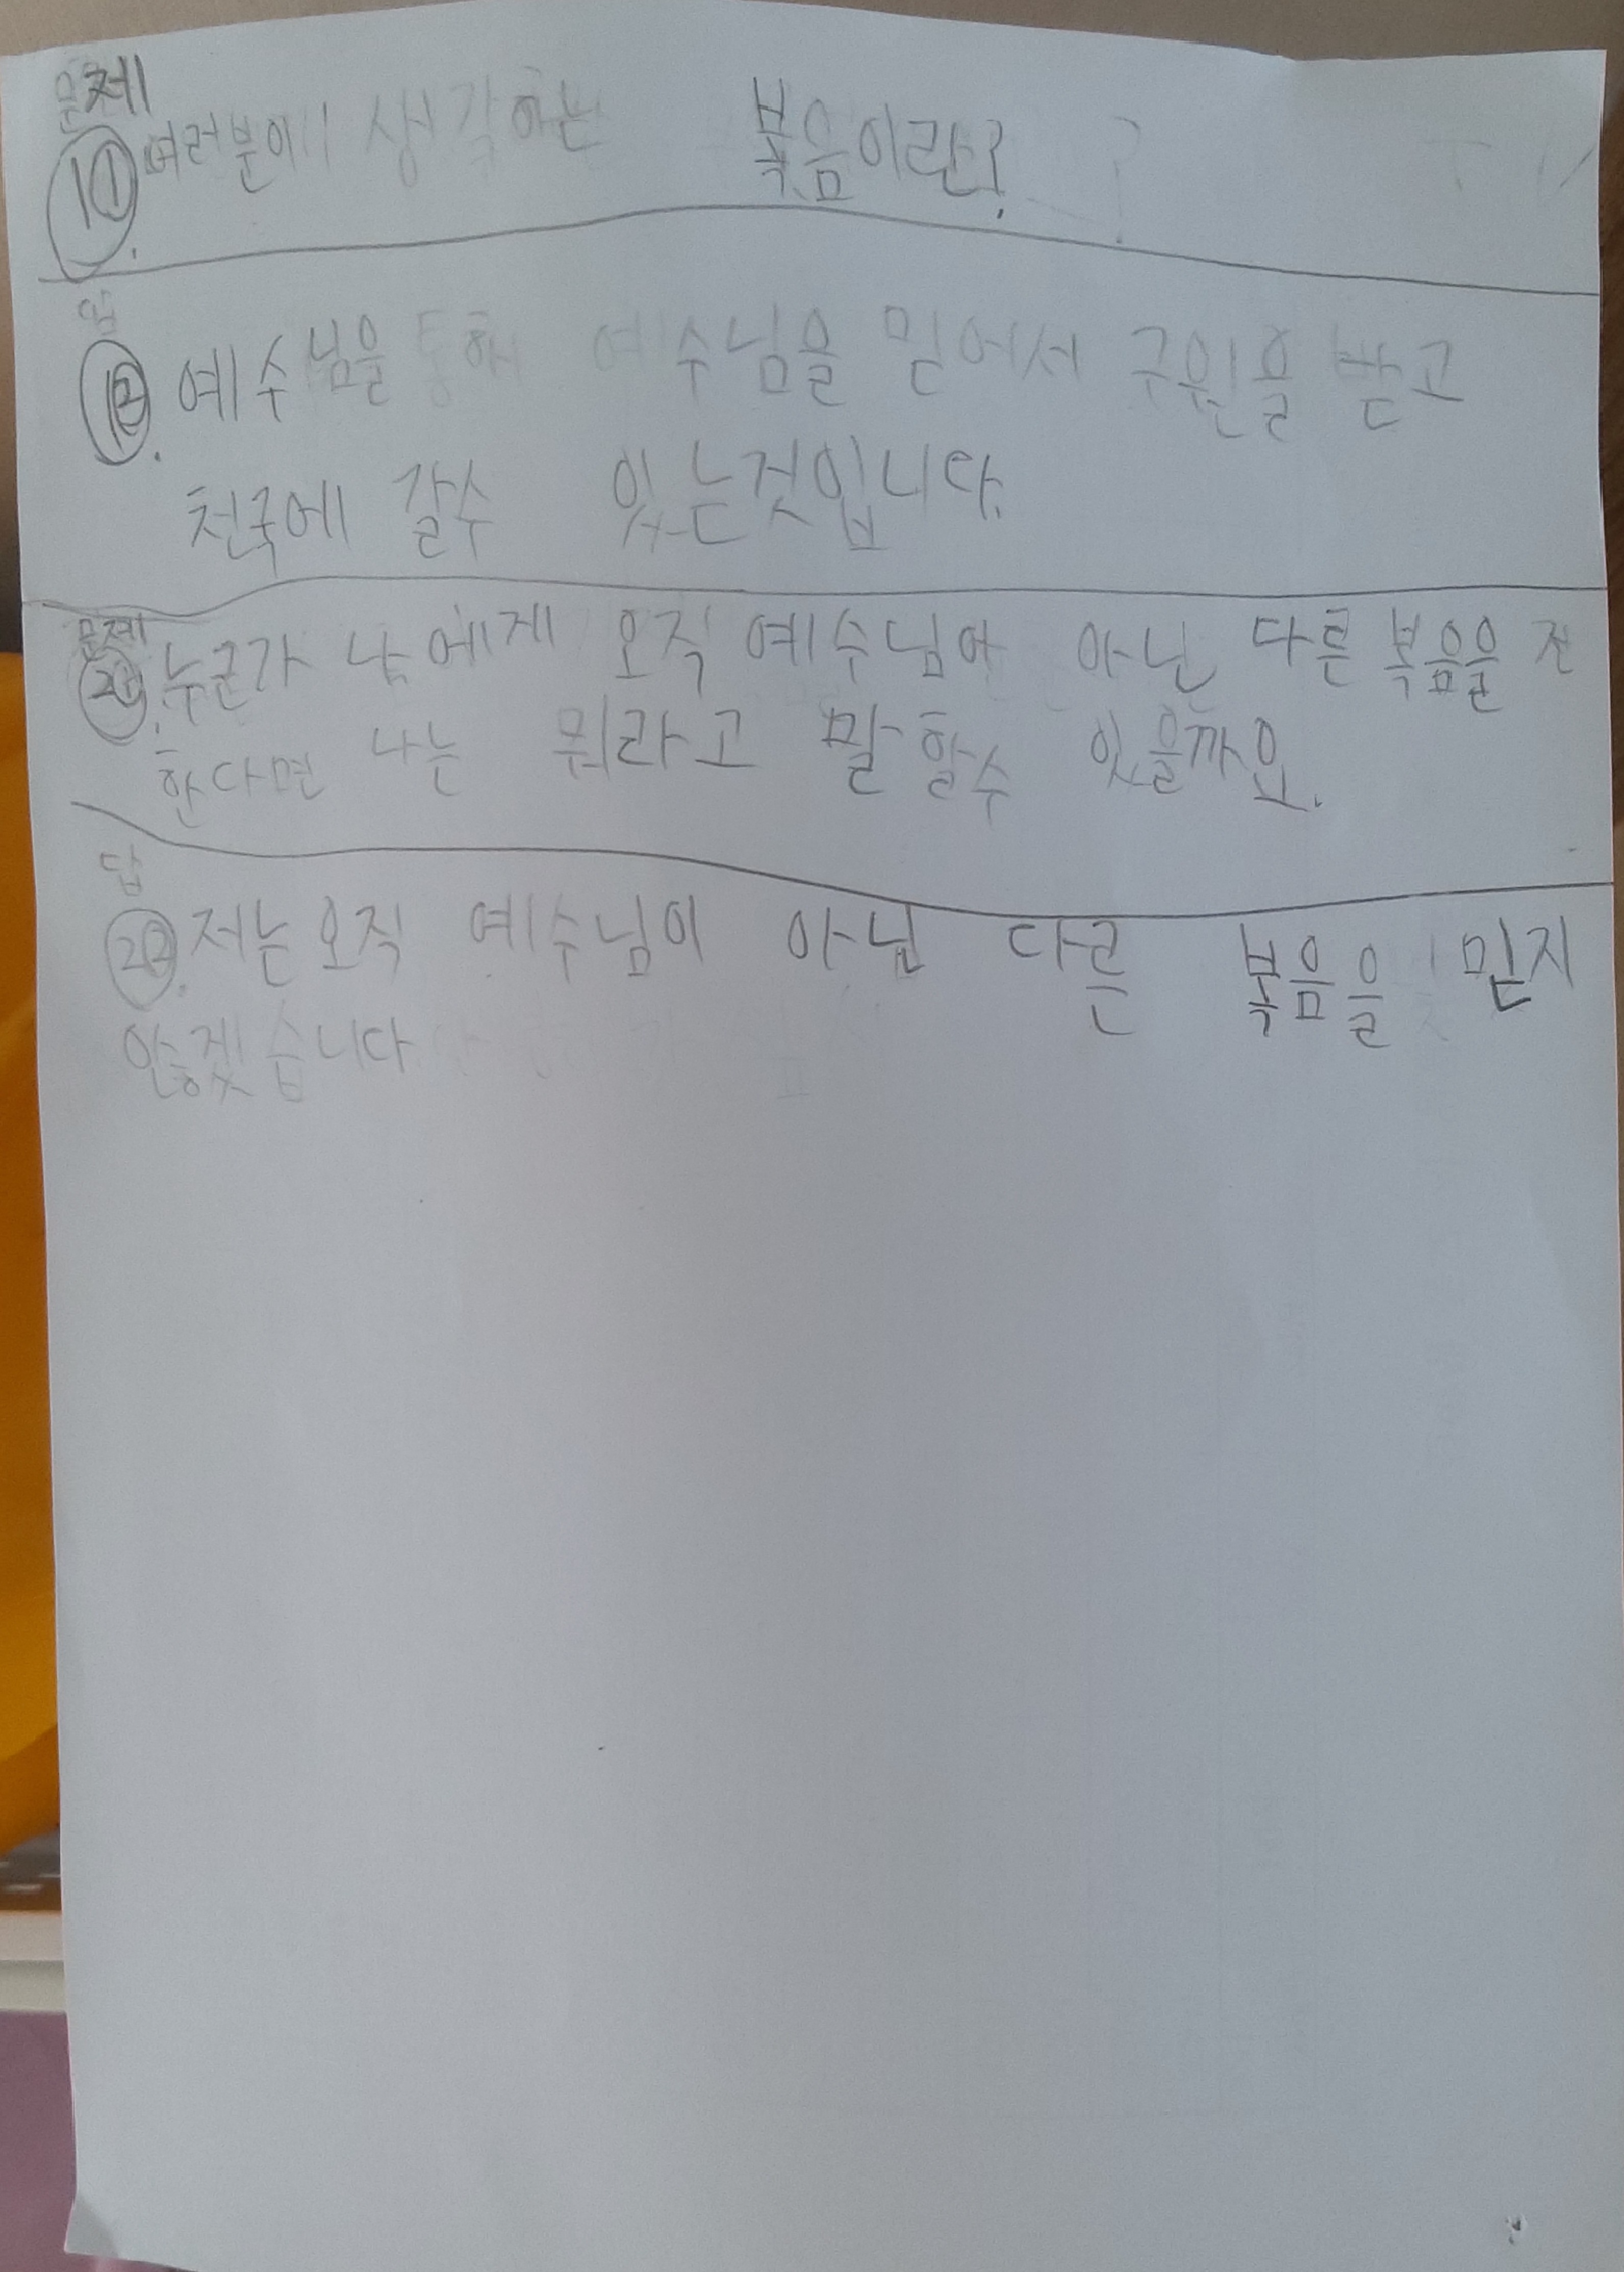 문제
1① 여러분이 생각하는 복음이란?
답
1②. 예수님을 통해 예수님을 믿어서 구원을 받고
천국에 갈수 있는것입니다.
문제
2①. 누군가 나에게 오직 예수님이 아닌 다른 복음을 전
한다면 나는 뭐라고 말할수 있을까요.
답
2②. 저는 오직 예수님이 아닌 다른 복음을 믿지
않겠습니다